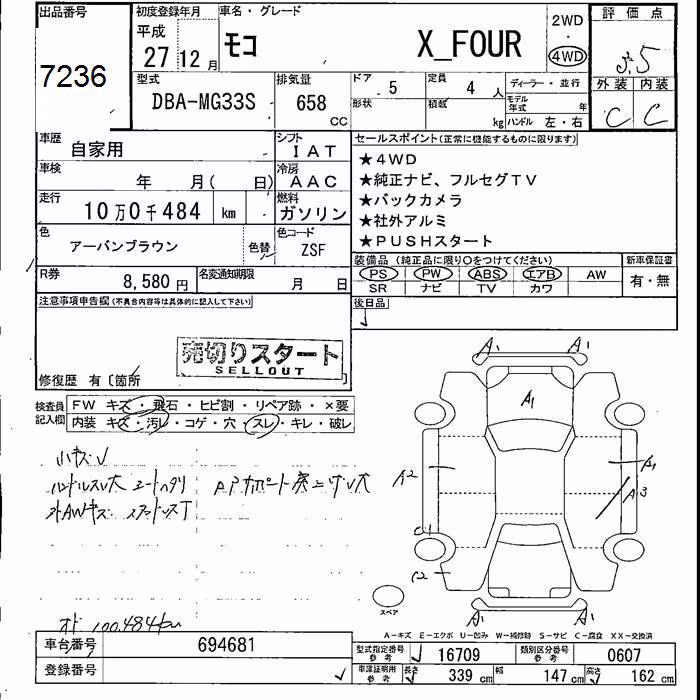 出品番号 初度登録年月 車名・グレード 2WD 評価点
平成
27 12月 モコ X_FOUR 4WD 3.5
7236
型式 排気量 ドア 5 定員 4人 ディーラー・並行 外装 内装
DBA-MG33S 658 CC 形状 積載 kg モデル年式 年 C C
ハンドル 左・右
車歴 自家用 シフト IAT セールスポイント(正常に機能するものに限ります)
車検 年 月( 日) 冷房 AAC ★4WD
★純正ナビ、フルセグTV
走行 10万0千484 km 燃料 ガソリン ★バックカメラ
★社外アルミ
色 アーバンブラウン 色替 色コード ZSF ★PUSHスタート
装備品(純正品に限り○をつけてください) 新車保証書
R券 8,580円 名変通知期限 月 日 PS PW ABS エアB AW 有・無
SR ナビ TV カワ
注意事項申告欄(不具合内容等は具体的に記入して下さい) 後日品
売切りスタート
SELLOUT
修復歴 有〔箇所
検査員記入欄 FW キズ・飛石・ヒビ割・リペア跡・×要
内装 キズ・汚レ・コゲ・穴・スレ・キレ・破レ
A1 A1
A1
小キズ
A2 A1
ハンドルスレ大 シートヘタリ
A3
外AWキズ
C1
C2
スペア
A1 A1
オド 100.484km
A-キズ E-エクボ U-凹み W-補修跡 S-サビ C-腐食 XX-交換済
車台番号 694681 型式指定番号 参考 16709 類別区分番号 参考 0607
登録番号 車庫証明用 参考 長さ 339cm 幅 147cm 高さ 162cm